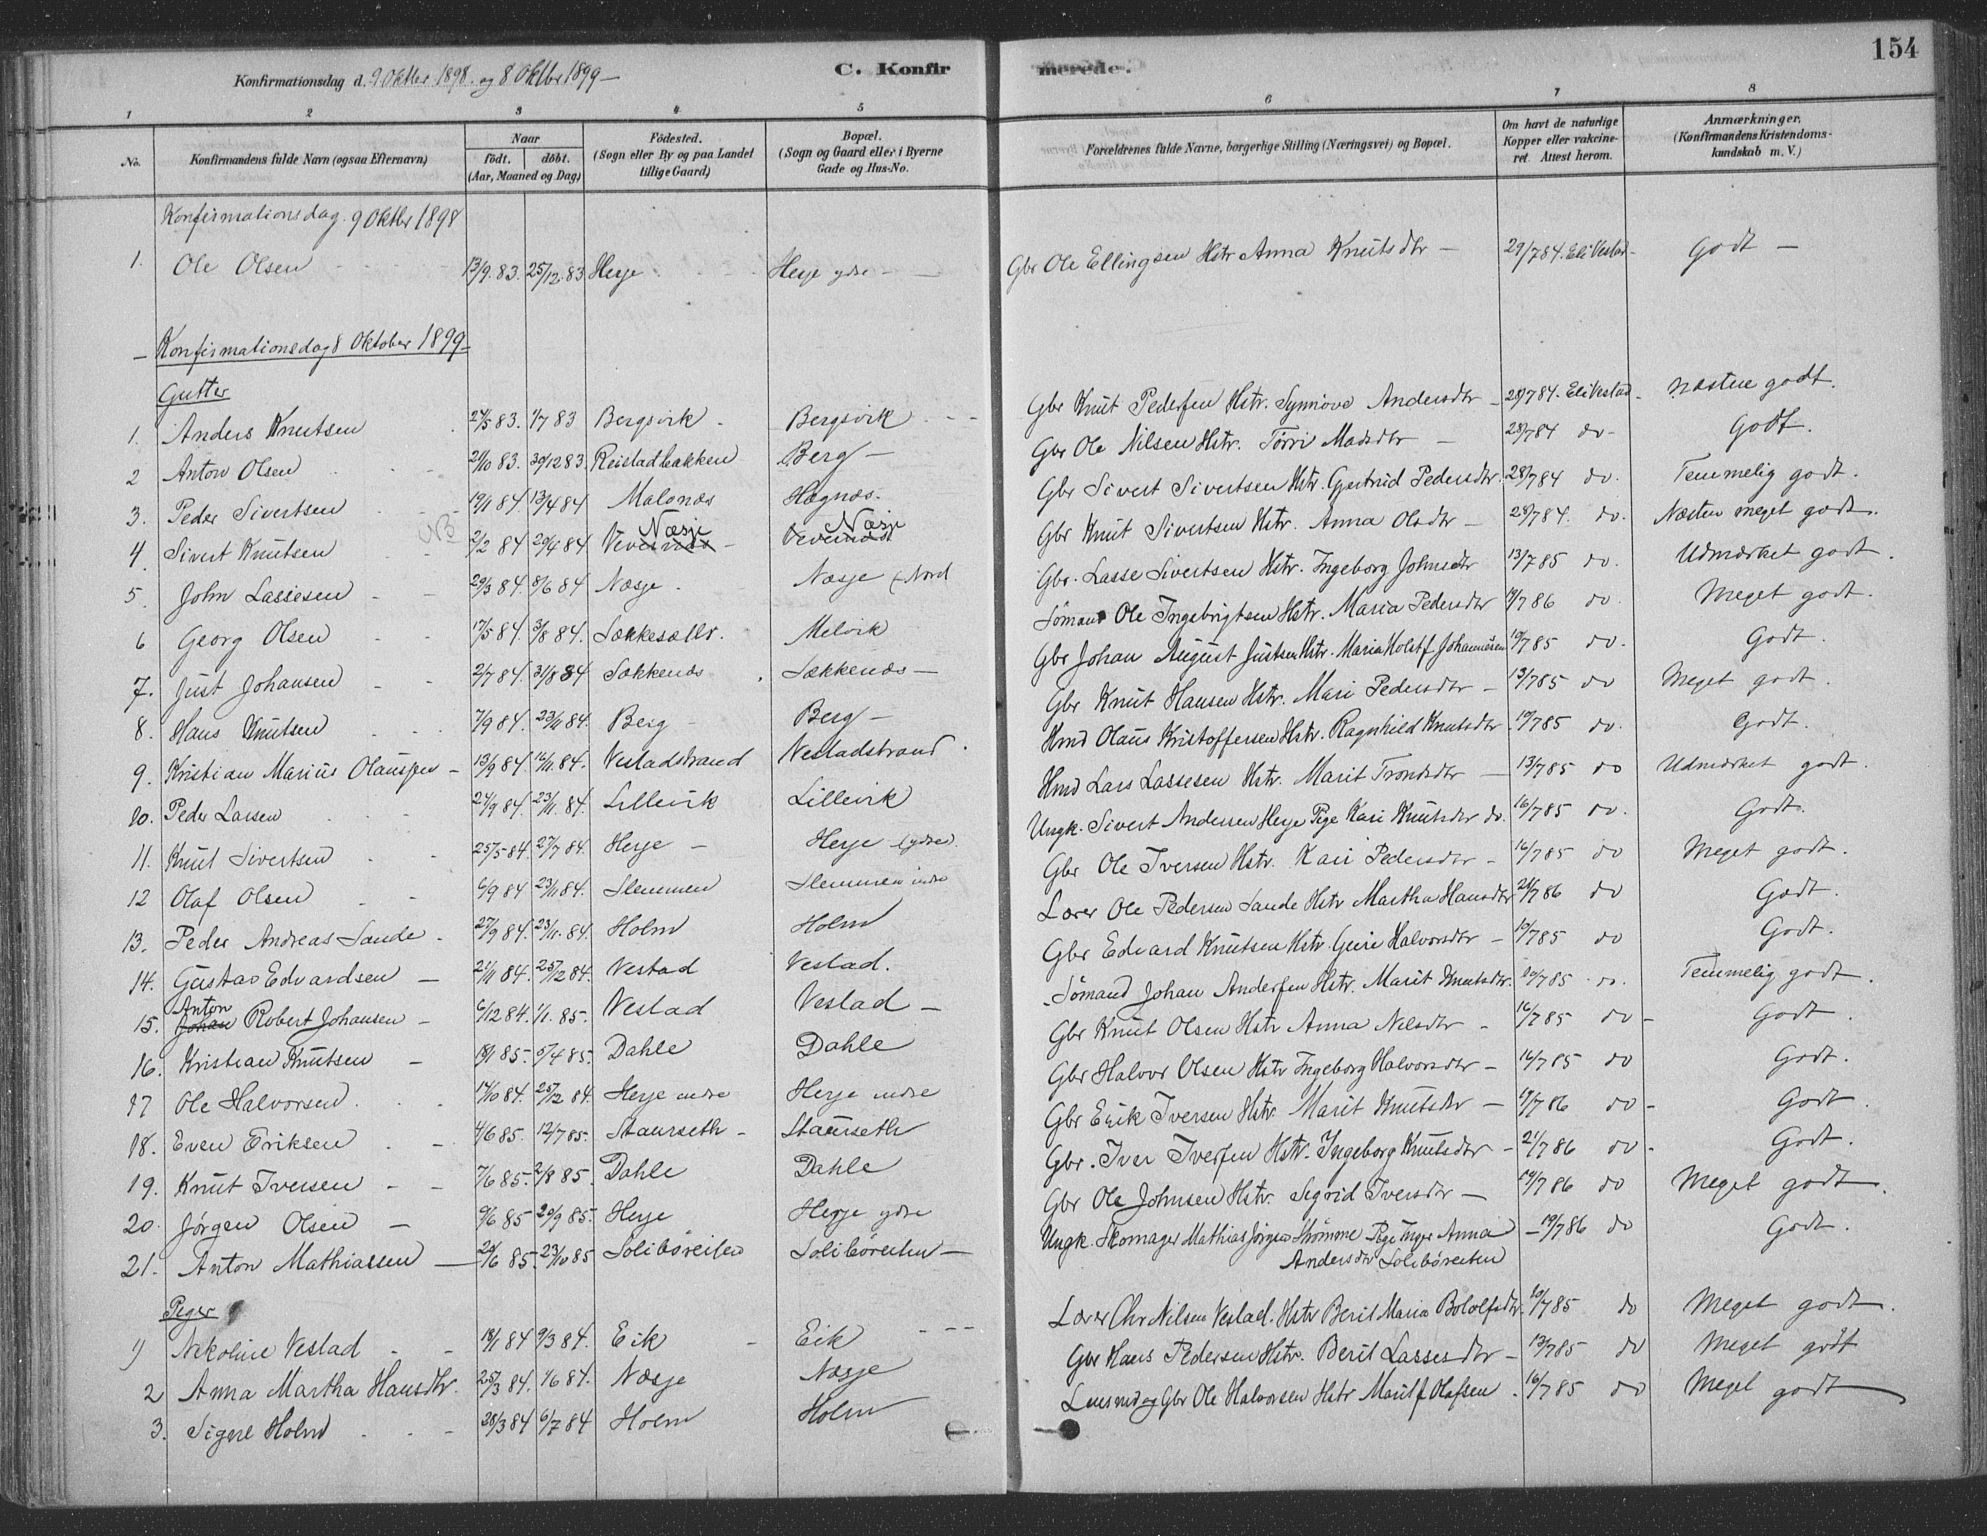 154
Konfirmationsdag d. 9 Oktbr. 1898. og 8 Oktbr 1899 –
C. Konfirmerede.
1 2 3 4 5 6 7 8
No. Konfirmandens fulde Navn (ogsaa Efternavn) Naar født. døbt. (Aar, Maaned og Dag) Fødested. (Sogn eller By og paa Landet tillige Gaard) Bopæl. (Sogn og Gaard eller i Byerne Gade og Hus-No. Forældrenes fulde Navne, borgerlige Stilling (Næringsvei) og Bopæl. Om havt de naturlige Kopper eller vakcineret. Attest herom. Anmærkninger. (Konfirmandens Kristendomskundskab m. V.)
Konfirmationsdag. 9 Oktbr 1898
1. Ole Olsen 13/9. 83. 25/12. 83 Herje Herje ydre – Gbr Ole Ellingsen Hstr Anna Knutsdtr – 29/7 84. Eli Vestad – Godt –
– Konfirmationsdag 8 Oktober 1899 –
Gutter
1. Anders Knutsen 24/5 83. 1/7 83 Bergsvik Bergsvik Gbr Knut Pedersen Hstr. Synnøve Andersdtr – 28/7 84. Eli Vestad – Næsten godt.
2 Anton Olsen 21/10 83. 30/12 83. Reistadbakken Berg – Gbr Ole Nilsen Hstr. Tørri Madsdtr – 28/7 84 do – Godt.
3. Peder Sivertsen 19/1 84 13/4 84 Malonæs Hagnæs. Gbr Sivert Sivertsen Hstr. Gjertrud Pedersdtr. 28/7 84 do. Temmelig godt.
4. Sivert Knutsen NB 2/2 84 20/4 84 Næsje Næsje Gbr Knut Sivertsen Hstr. Anna Olsdtr – 28/7 84. do. Næsten meget godt.
5. John Lassesen 29/3 84 8/6 84 Næsje Næsje (Nord Gbr. Lasse Sivertsen Hstr. Ingeborg Johnsdtr 13/7 85 do. Udmærket godt.
6 Georg Olsen 17/5 84. 3/8 84. Sækkesæltr. Melvik Sømand Ole Ingebrigtsen Hstr. Maria Pedersdtr 19/7 86 do. Meget godt.
7. Just Johansen 2/7 84. 31/8 84 Sækkenæs Sækkenæs – Gbr Johan August Justsen Hstr. Maria Holst f. Johannesen 10/7 85 do. Godt.
8. Hans Knutsen 7/9 84. 23/11 84. Berg Berg – Gbr Knut Hansen Hstr. Mari Pedersdtr – 13/7 85 do Meget godt.
9. Kristian Marius Olaussen – 13/9 84. 16/11. 84. Vestadstrand Vestadstrand Hmd Olaus Kristoffersen Hstr. Ragnhild Knutsdtr. 10/7 85 do. Godt.
10. Peder Larsen 24/9 84. 23/11. 84. Lillevik Lillevik Hmd Lars Lassesen Hstr. Marit Trondsdtr – 13/7 85 do Udmærket godt.
11. Knut Sivertsen 25/5 84. 27/7 84. Herje – Herje (ydre) Ungk. Sivert Andersen Herje Pige Kari Knutsdtr do. 16/7 85 do. Godt.
12 Olaf Olsen 6/9 84 23/11 84. Slemmen Slemmen indre Gbr Ole Iversen Hstr. Kari Pedersdtr – 16/7 85 do Meget godt.
13. Peder Andreas Sande. 27/9 84. 23/11. 84. Holm Holm Lærer Ole Pedersen Sande Hstr Martha Hansdtr 21/7 86 do Godt.
14. Gustav Edvardsen – 21/11 84. 25/12 84. Vestad Vestad. Gbr Edvard Knutsen Hstr. Guri Halvorsdtr – 10/7 85 do Godt.
Anton
15. Johan Robert Johansen – 6/12 84. 1/1. 85. Vestad Vestad – Sømand Johan Andersen Hstr. Marit Knutsdtr. 10/7 85 do. Temmelig godt.
16. Kristian Knutsen – 18/1 85. 5/4 85. Dahle Dahle Gbr Knut Olsen Hstr Anna Nilsdtr – 16/7 85 do – Godt.
17 Ole Halvorsen. 14/10 84. 25/12 84. Herje indre Herje indre Gbr Halvor Olsen Hstr Ingeborg Halvorsdtr – 16/7 85 do Godt.
18. Even Eriksen 4/6 85. 12/7 85. Staurseth – Staurseth Gbr Erik Iversen Hstr. Marit Knutsdtr – 19/7 86 do – Godt.
19. Knut Iversen – – 7/6 85. 2/8 85. Dahle Dahle Gbr. Iver Iversen Hstr. Ingeborg Knutsdtr – 21/7 86 do – Godt.
20. Jørgen Olsen – 9/6 85 20/9 85. Herje Herje ydre Gbr Ole Johnsen Hstr. Sigrid Iversdtr – 19/7 86 do Meget godt.
21. Anton Mathiassen – 20/6 85. 23/10 85 Solibøreiten Solibøreiten – Ungk. Skomager Mathias Jørgen Strømme Pige Inger Anna – 19/7 86 do Godt.
Andersdtr Solibøreiten
Piger
1) Nikoline Vestad 18/1 84 9/3 84. Eik Eik Lærer Chr Nilsen Vestad. Hstr Berit Maria Bololfsdtr. 10/7 85 do Meget godt.
2 Anna Martha Hansdtr. 25/3 84. 1/6 84. Næsje Næsje Gbr Hans Pedersen Hstr. Berit Lassesdtr – 13/7 85 do Meget godt
3. Signe Holm 28/3 84 6/7 84 Holm Holm Lensmd og Gbr Ole Halvorsen Hstr Marit f Olafsen. 16/7 85 do Meget godt